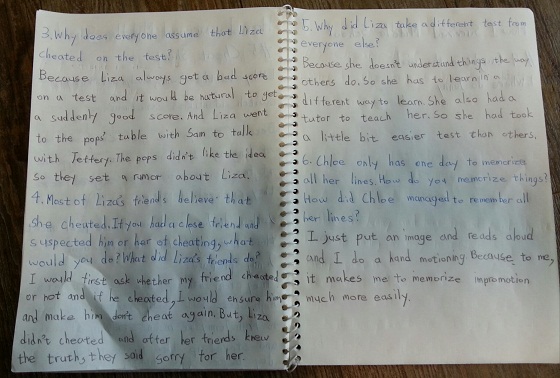 3. Why does everyone assume that Liza
cheated on the test?
Because Liza always got a bad score
on a test and it would be natural to get
a suddenly good score. And Liza went
to the pops' table with Sam to talk
with Jeffery. The pops didn't like the idea
so they set a rumor about Liza.
4. Most of Liza's friends believe that
she cheated. If you had a close friend and
suspected him or her of cheating, what
would you do? What did Liza's friends do?
I would first ask whether my friend cheated
or not and if he cheated, I would ensure him
and make him don't cheat again. But, Liza
didn't cheated and after her friends knew
the truth, they said sorry for her.
5. Why did Liza take a different test from
everyone else?
Because she doesn't understand things the way
others do. So she has to learn in a
different way to learn. She also had a
tutor to teach her. So she had took
a little bit easier test than others.
6. Chloe only has one day to memorize
all her lines. How do you memorize things?
How did Chloe managed to remember all
her lines?
I just put an image and reads aloud
and I do a hand motioning Because to me,
it makes me to memorize
much more easily.